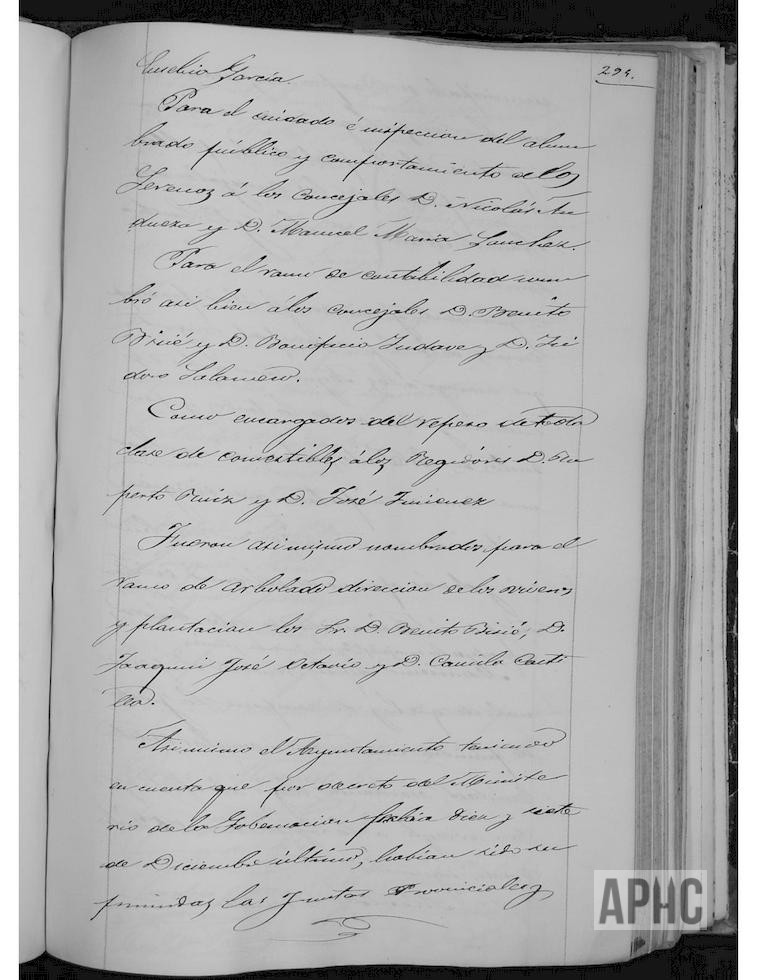 294.
Eusebio García.
Para el cuidado é inspeccion del alum
brado público y comportamiento de los
Serenos á los concejales D. Nicolás An
dueza y D. Manuel María Sanchez.
Para el ramo de contabilidad nom
bró asi bien á los concejales D. Benito
Bisié y D. Bonifacio Indave y D. Isi
doro Salamero.
Como encargados del repeso de toda
clase de comestibles á los Regidores D. Ru
perto Ruiz y D. José Jimenez
Fueron asi mismo nombrados para el
ramo de arbolado direccion de los viveros
y plantacion los Sr. D. Benito Bisié, D.
Joaquin José Octavio y D. Camilo Casti
lla.
Asi mismo el Ayuntamiento teniendo
en cuenta que por decreto del Ministe
rio de la Gobernacion fecha diez y siete
de Diciembre último, habian sido su
primidas las Juntas Provinciales
APHC